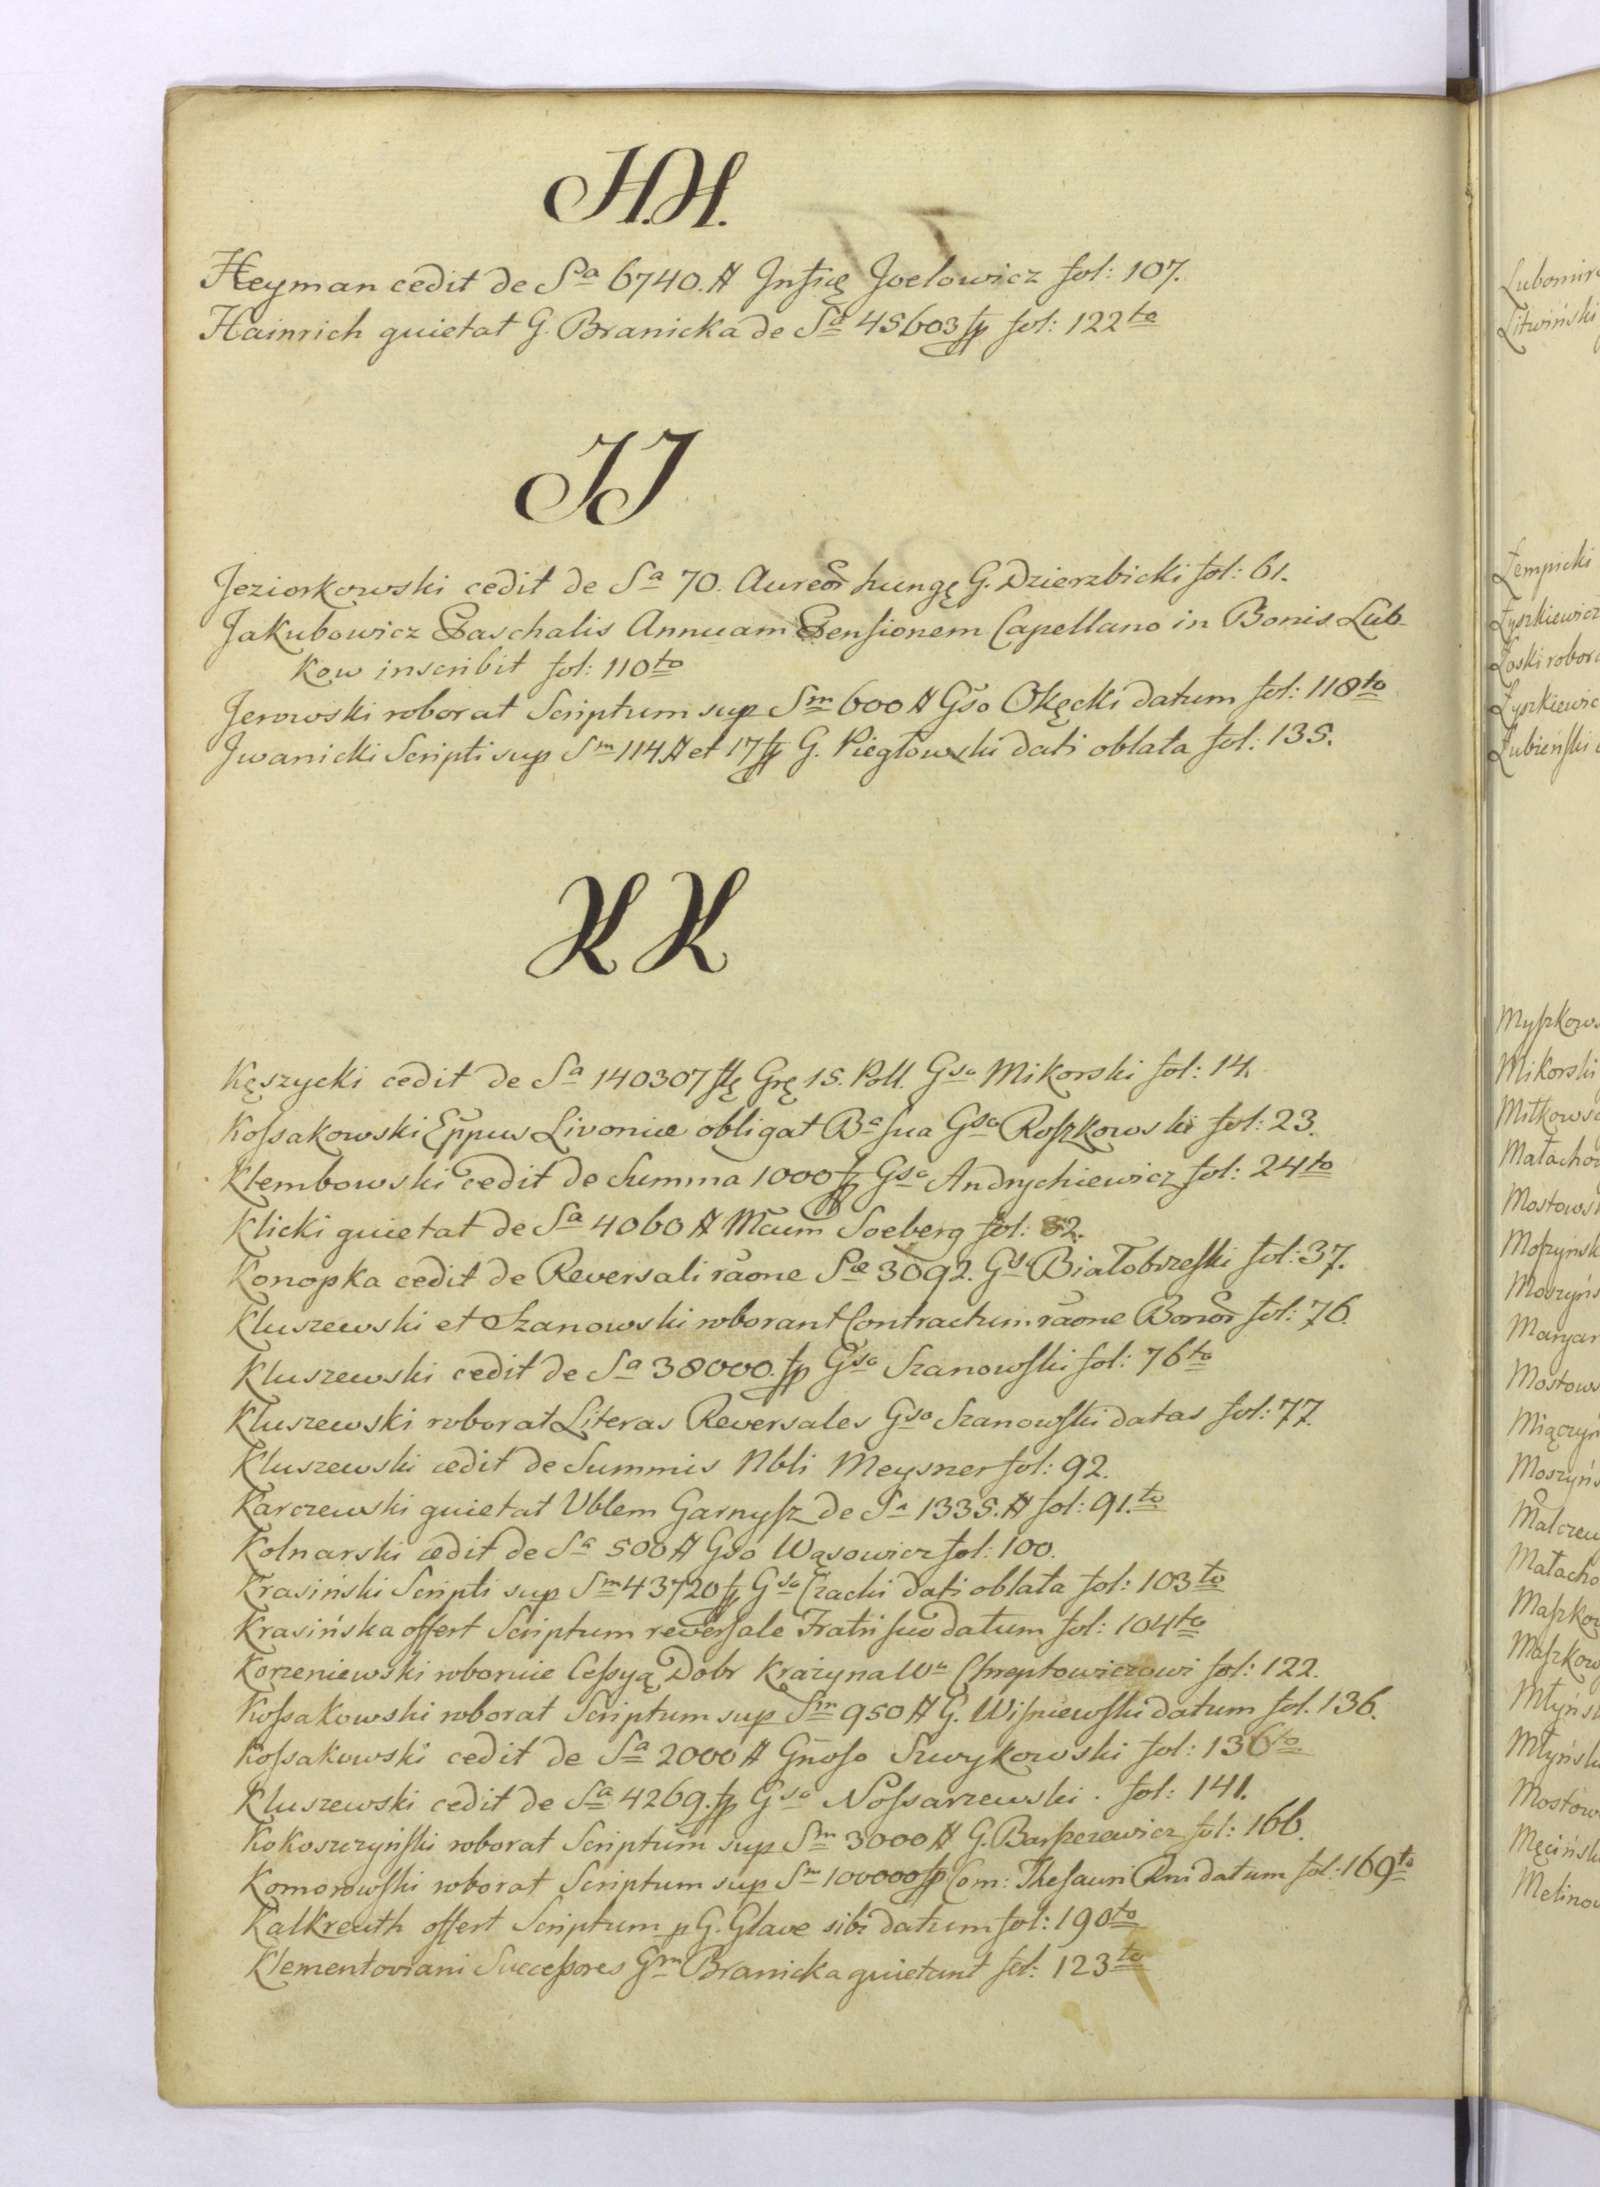 H.H.
Heyman cedit de Sa 6740. # Joelowicz fol: 107.
Hainrich quietat G. Branicka de Sa 45603 fp fol: 122to
JJ
Jeziorkowski cedit de Sa 70. Aureor hungę G. Dzierzbicki fol: 61.
Jakubowicz Paschalis Annuam Pensionem Capellano in Bonis Lub-
kow inscribit fol: 110to
Jerowski roborat Scriptum sup Sm 600 # Gso Okęcki datum fol: 118to
Jwanicki Scripti sup Sm 114 # et 17 fp G. Piegłowski dati oblata fol: 135.
KK
Kęszycki cedit de Sa 140307 flę Grę 15. Poll. Gso Mikorski fol: 14.
Koſsakowski Eppus Livoniæ obligat Ba sua Gso Roſzkowski fol: 23.
Klembowski cedit de Summa 1000 fp Gso Andrychiewicz fol: 24to
Klicki quietat de Sa 4060 # Mcum Soeberg fol: 82.
Konopka cedit de Reversali raone Sæ 3092. Gso Białobrzeſki fol: 37.
Kluszewski et Szanowski roborant Contractum raone Bonor fol: 76.
Kluszewski cedit de Sa 38000. fp Gso Szanowſki fol: 76to
Kluszewski roborat Literas Reversales Gso Szanowſki datas fol: 77.
Kluszewski cedit de Summis Nbli Meysner fol: 92.
Karczewski quietat Vblem Garnyſz de Sa 1335. # fol: 91.to
Kolnarski cedit de Sa 500 # Gso Wąsowicz fol: 100.
Krasiński Scripti sup Sm 43720 fp Gso Czacki dati oblata fol: 103to
Krasińska offert Scriptum reverſale Fratri suo datum fol: 104to
Korzeniewski roboruie Ceſsyą Dobr Krażyna Wu Chreptowiczowi fol: 122.
Koſsakowski roborat Scriptum sup Sm 950 # G. Wiſniewſki datum fol. 136.
Koſsakowski cedit de Sa 2000 # Gnoſo Szwykowski fol: 136to
Kluszewski cedit de Sa 4269. fp Gso Noſsarzewski. fol: 141.
Kokoszczyńſki roborat Scriptum sup Sm 3000 # G. Barſzczewicz fol: 166.
Komorowſki roborat Scriptum sup Sm 100000 fp Com: Theſauri Rni datum fol: 169to
Kalkreuth offert Scriptum p G. Glave sibi datum fol: 190to
Klementoviani Succeſsores Gm Branicka quietant fol: 123to
Litwiński
Łempicki
Łyszkiewicz
Łubieńſki
Mikorski